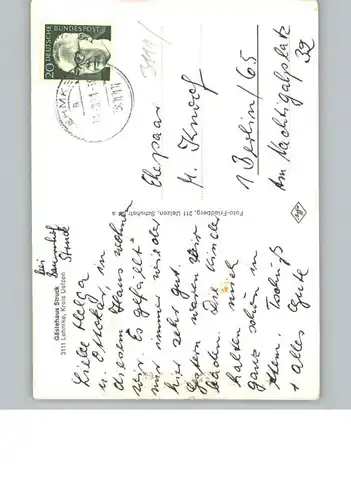 Gästehaus Struck
3111 Lehmke, Kreis Uelzen
bei
Struck
Liebe Helga
u. Ottokar, in
diesem Haus wohnen
wir. Es gefällt
uns immer wieder
hier sehr gut.
Gestern waren wir
baden. Die Kinder
halten auch
ganz schön in
Atem. Tschüß
+ alles Gute
Foto-Friedberg, 311 Uelzen, Schuhstr.
Agfa
20 DEUTSCHE
BUNDESPOST
3111
Ehepaar
M. Knoof
1 Berlin 65
Am Nachtigalplatz
32